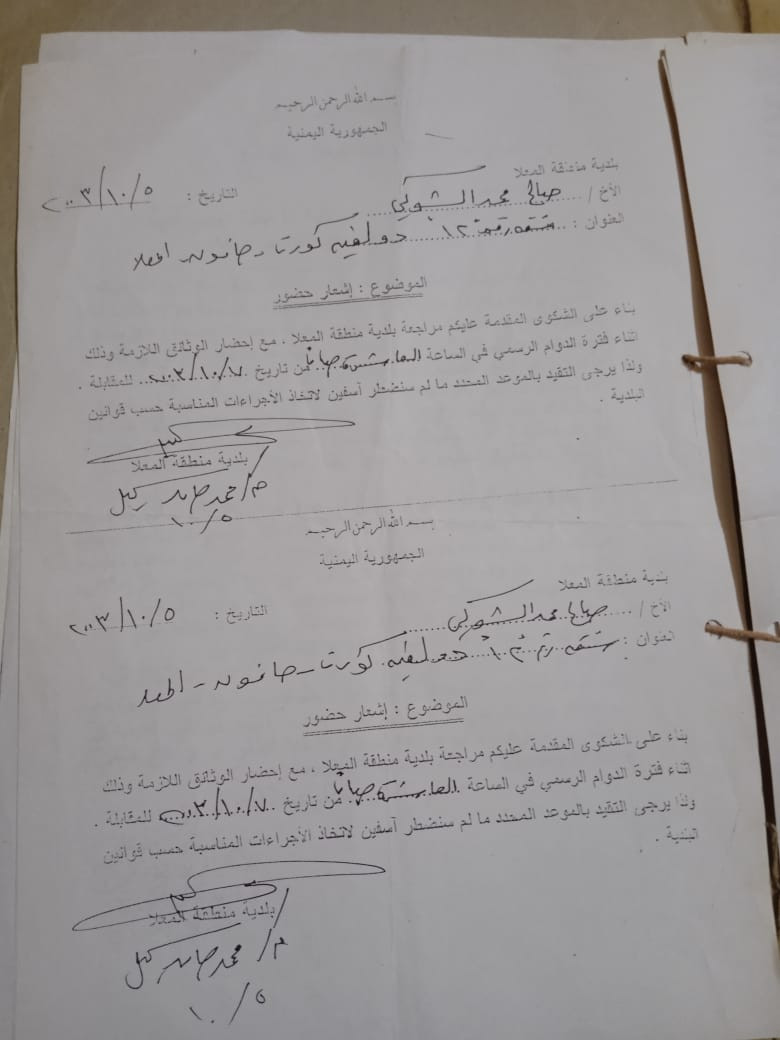 بسم الله الرحمن الرحيم
الجمهورية اليمنية
بلدية منطقة المعلا
الأخ / صالح محمد الشوكي التاريخ : ٢٠٠٣/١٠/٥
العنوان : شقة رقم ١٢ دولفيه كورت - حافون المعلا
الموضوع : إشعار حضور
بناء على الشكوى المقدمة عليكم مراجعة بلدية منطقة المعلا ، مع إحضار الوثائق اللازمة وذلك
اثناء فترة الدوام الرسمي في الساعة العاشرة صباحاً من تاريخ ٢٠٠٣/١٠/٧ للمقابلة .
ولذا يرجى التقيد بالموعد المحدد ما لم سنضطر آسفين لاتخاذ الأجراءات المناسبة حسب قوانين
البلدية .
بلدية منطقة المعلا
م/ محمد
١٠/٥
بسم الله الرحمن الرحيم
الجمهورية اليمنية
بلدية منطقة المعلا
الأخ / صالح محمد الشوكي التاريخ : ٢٠٠٣/١٠/٥
العنوان : شقة رقم دولفيه كورت - حافون - المعلا
الموضوع : إشعار حضور
بناء على الشكوى المقدمة عليكم مراجعة بلدية منطقة المعلا ، مع إحضار الوثائق اللازمة وذلك
اثناء فترة الدوام الرسمي في الساعة العاشرة صباحاً من تاريخ ٢٠٠٣/١٠/٧ للمقابلة .
ولذا يرجى التقيد بالموعد المحدد ما لم سنضطر آسفين لاتخاذ الأجراءات المناسبة حسب قوانين
البلدية .
بلدية منطقة المعلا
م/ محمد
١٠/٥